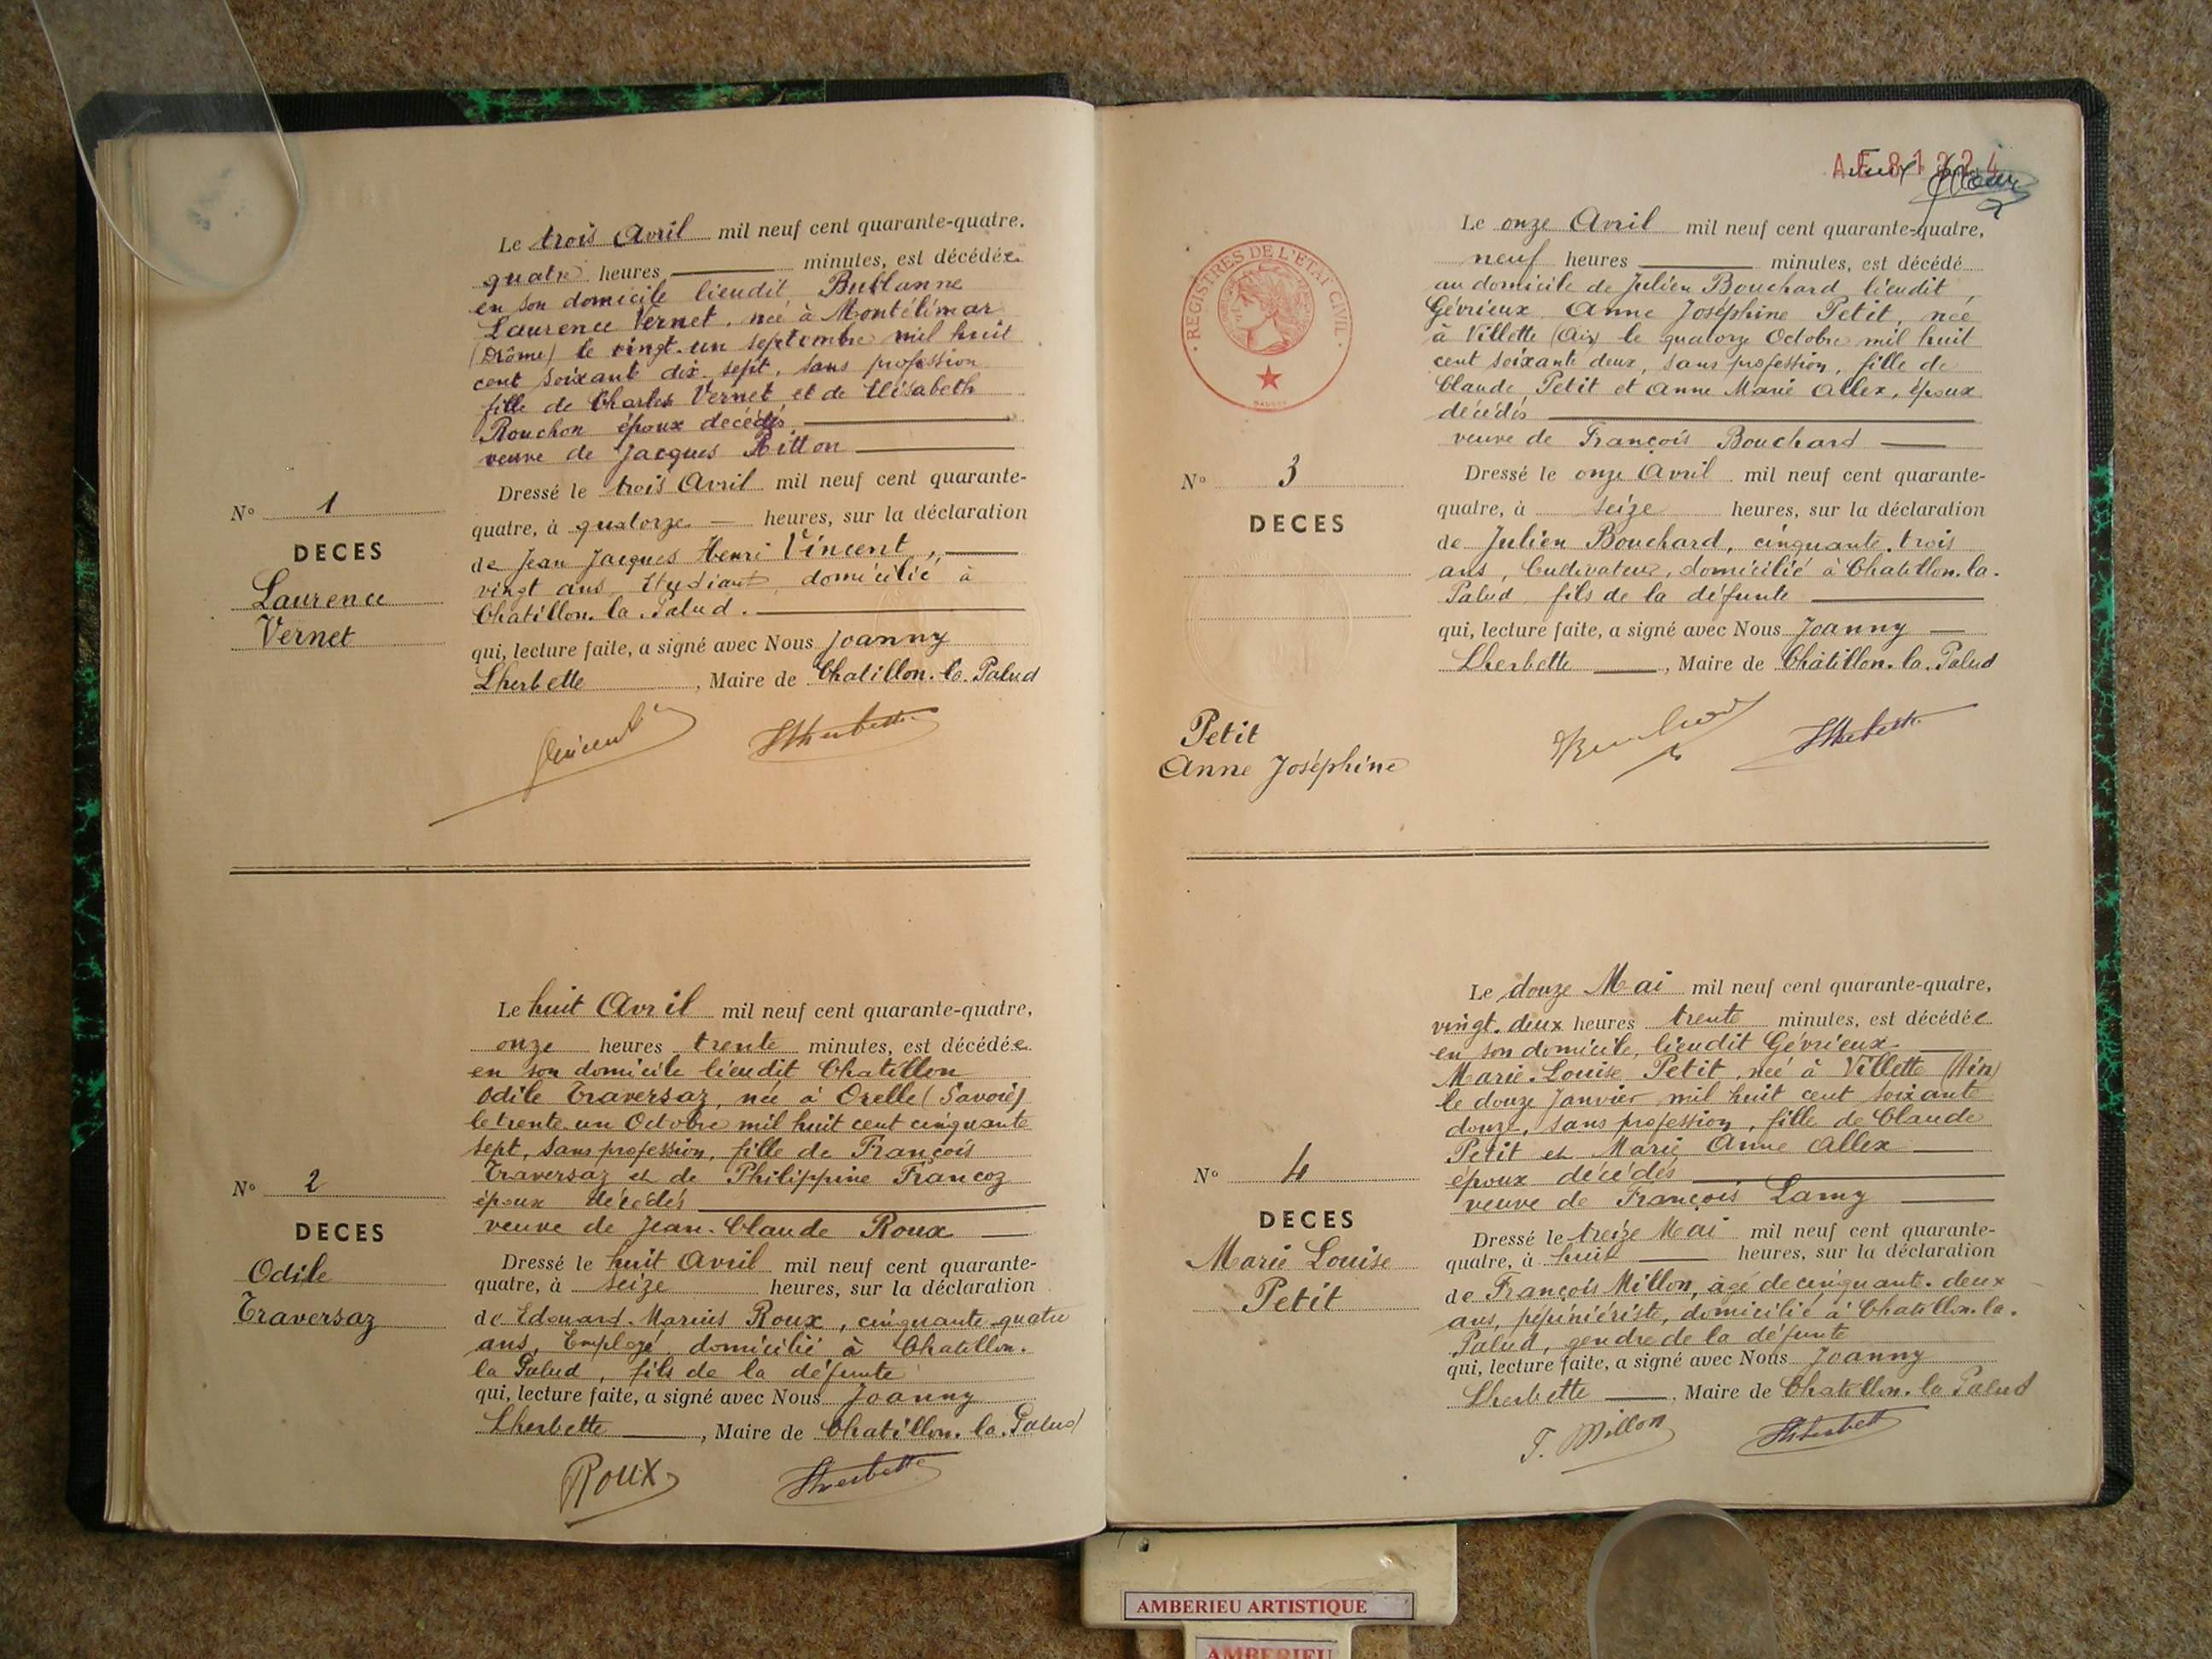 Le trois Avril mil neuf cent quarante-quatre.
quatre heures minutes, est décédée
en son domicile lieudit Bublanne
Laurence Vernet, née à Montélimar
(Drôme) le vingt-un septembre mil huit
cent soixante dix-sept, sans profession
fille de Charles Vernet et de Elisabeth
Rouchon époux décédés
veuve de Jacques Bitton
Dressé le trois Avril mil neuf cent quarante-
quatre, à quatorze heures, sur la déclaration
de Jean Jacques Henri Vincent,
vingt ans, Etudiant, domicilié à
Chatillon-la-Palud.
qui, lecture faite, a signé avec Nous Joanny
Lherbette, Maire de Chatillon-la-Palud
N° 1
DECES
Laurence
Vernet
Vincent
Lherbette
Le huit Avril mil neuf cent quarante-quatre,
onze heures trente minutes, est décédée
en son domicile lieudit Chatillon
Odile Traversaz, née à Orelle (Savoie)
le trente-un Octobre mil huit cent cinquante
sept, sans profession, fille de François
Traversaz et de Philippine Francoz
époux décédés
veuve de Jean-Claude Roux
Dressé le huit Avril mil neuf cent quarante-
quatre, à seize heures, sur la déclaration
de Edouard-Marius Roux, cinquante-quatre
ans, Employé, domicilié à Chatillon-
la Palud, fils de la défunte
qui, lecture faite, a signé avec Nous Joanny
Lherbette, Maire de Chatillon-la-Palud
N° 2
DECES
Odile
Traversaz
Roux
Lherbette
AE 81224
REGISTRES DE L'ETAT CIVIL
Le onze Avril mil neuf cent quarante-quatre,
neuf heures minutes, est décédé
au domicile de Julien Bouchard lieudit
Gévrieux Anne Joséphine Petit, née
à Villette (Ain) le quatorze Octobre mil huit
cent soixante deux, sans profession, fille de
Claude Petit et Anne Marie Allex, époux
décédés
veuve de François Bouchard
Dressé le onze Avril mil neuf cent quarante-
quatre, à seize heures, sur la déclaration
de Julien Bouchard, cinquante-trois
ans, Cultivateur, domicilié à Chatillon-la-
Palud, fils de la défunte
qui, lecture faite, a signé avec Nous Joanny
Lherbette, Maire de Châtillon-la-Palud
N° 3
DECES
Petit
Anne Joséphine
Bouchard
Lherbette
Le douze Mai mil neuf cent quarante-quatre,
vingt-deux heures trente minutes, est décédée
en son domicile, lieudit Gévrieux
Marie-Louise Petit, née à Villette (Ain)
le douze Janvier mil huit cent soixante
douze, sans profession, fille de Claude
Petit et Marie Anne Allex
époux décédés
veuve de François Lamy
Dressé le treize Mai mil neuf cent quarante-
quatre, à huit heures, sur la déclaration
de François Millon, âgé de cinquante-deux
ans, pépiniériste, domicilié à Chatillon-la-
Palud, gendre de la défunte
qui, lecture faite, a signé avec Nous Joanny
Lherbette, Maire de Chatillon-la Palud
N° 4
DECES
Marie Louise
Petit
F. Millon
Lherbette
AMBERIEU ARTISTIQUE
AMBERIEU